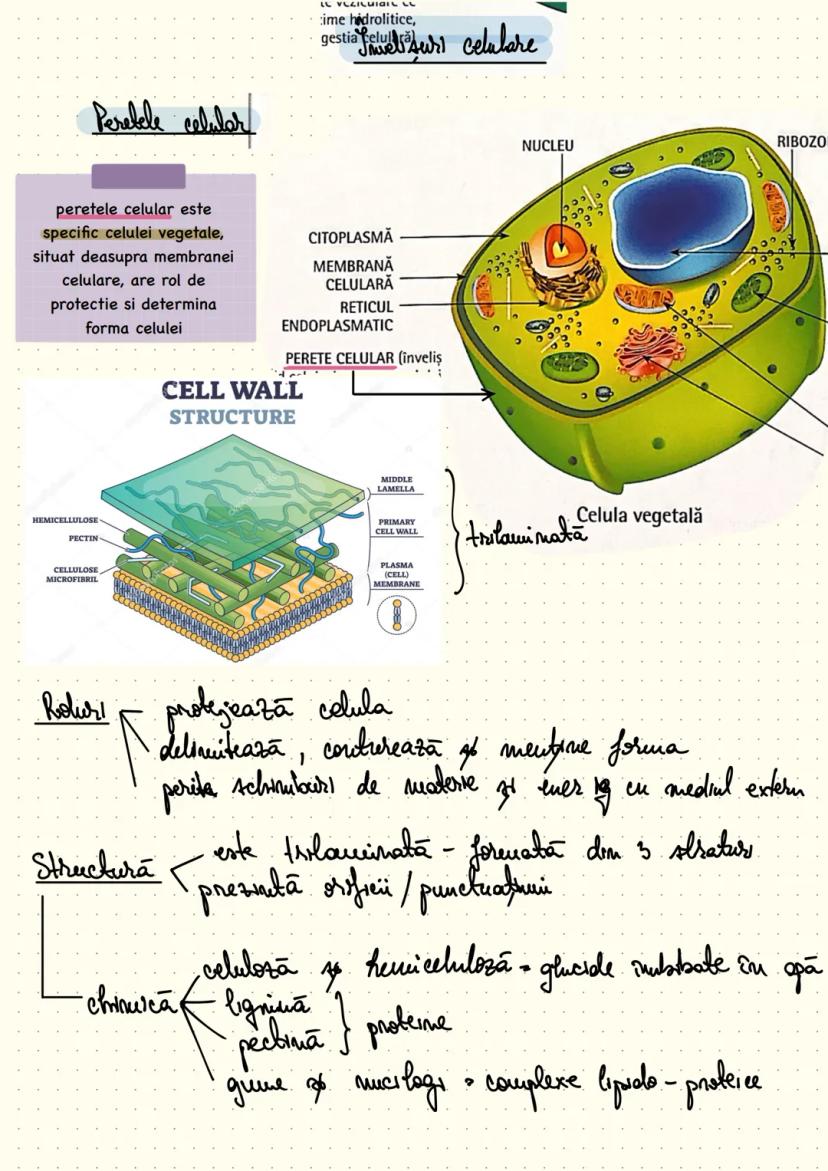 ime hidrolitice,
gestia celulară)
Învelișuri celulare
Peretele celular
peretele celular este
specific celulei vegetale,
situat deasupra membranei
celulare, are rol de
protectie si determina
forma celulei
NUCLEU
RIBOZO
CITOPLASMĂ
MEMBRANĂ
CELULARĂ
RETICUL
ENDOPLASMATIC
PERETE CELULAR (înveliș
Celula vegetală
CELL WALL
STRUCTURE
MIDDLE
LAMELLA
HEMICELLULOSE
PECTIN
PRIMARY
CELL WALL
CELLULOSE
MICROFIBRIL
PLASMA
(CELL)
MEMBRANE
trilaminată
Roluri
protejează celula
delimitează, conturează și menține forma
schimburi de materie și energ cu mediul extern
Structură
este trilaminată - formată din 3 straturi
prezintă orificii / punctuațiuni
chimică
celuloză și hemiceluloză = glucide îmbibate în apă
lignină
pectină
proteine
gume și mucilagi = complexe lipido - proteice